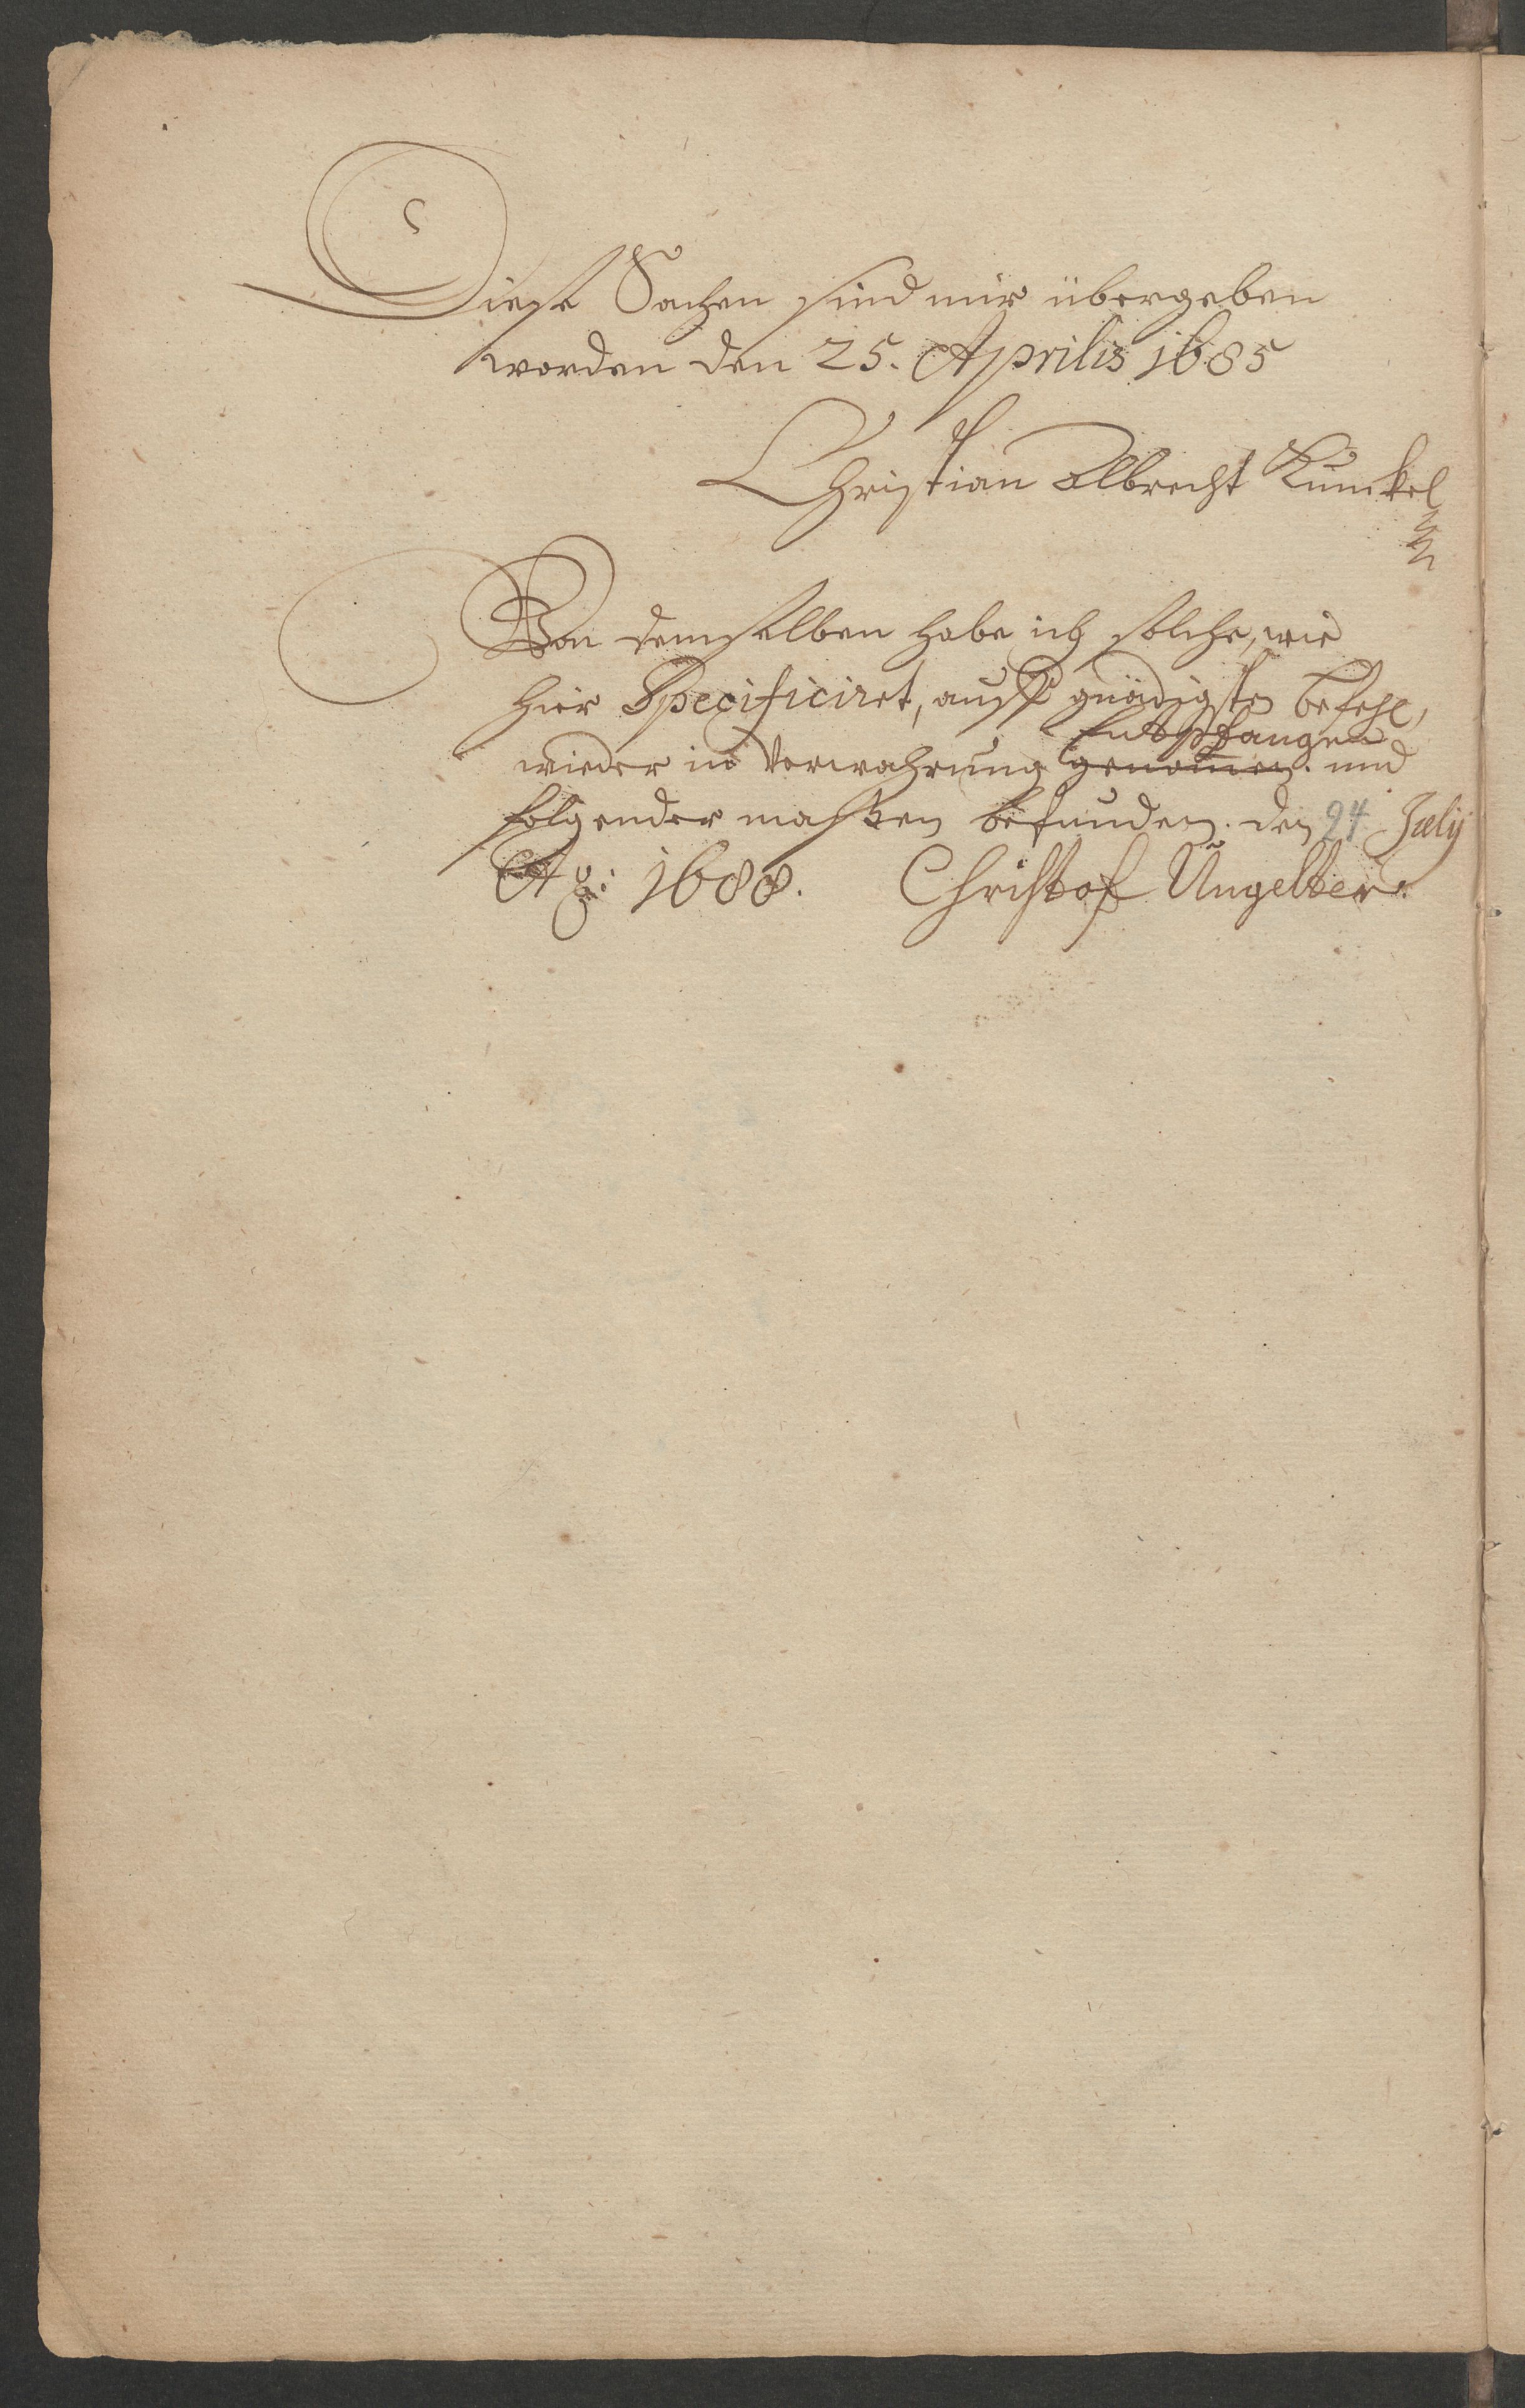 Diese Sachen sind mir übergeben
worden den 25. Aprilis 1685
Christian Albrecht Kunckel
Von demselben habe ich solche, wie
hier Specificiret, auff gnädigsten befehl,
Entpfangen
wieder in Verwahrung genom̅en. und
folgender maßen befunden. den 24 Julij
Aõ: 1688. Christof Ungelter.